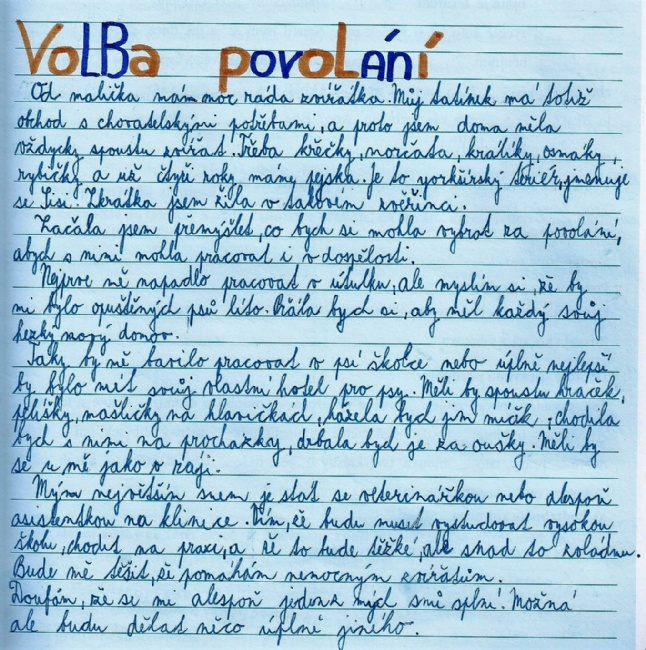 Volba povolání
Od malička mám moc ráda zvířátka. Můj tatínek má totiž
obchod s chovatelskými potřebami, a proto jsem doma měla
vždycky spoustu zvířat. Třeba křečky, morčata, králíky, osmáky,
rybičky a už čtyři roky máme pejska. Je to yorkšírský teriér, jmenuje
se Sisi. Zkrátka jsem žila v takovém zvěřinci.
Začala jsem přemýšlet, co bych si mohla vybrat za povolání,
abych s nimi mohla pracovat i v dospělosti.
Nejprve mě napadlo pracovat v útulku, ale myslím si, že by
mi bylo opuštěných psů líto. Přála bych si, aby měl každý svůj
hezký nový domov.
Taky by mě bavilo pracovat v psí školce nebo úplně nejlepší
by bylo mít svůj vlastní hotel pro psy. Měli by spoustu hraček,
pelíšky, mašličky na hlavičkách, házela bych jim míček, chodila
bych s nimi na procházky, drbala bych je za oušky. Měli by
se u mě jako v ráji.
Mým největším snem je stát se veterinářkou nebo alespoň
asistentkou na klinice. Vím, že budu muset vystudovat vysokou
školu, chodit na praxi, a že to bude těžké, ale snad to zvládnu.
Bude mě těšit, že pomáhám nemocným zvířatům.
Doufám, že se mi alespoň jeden z mých snů splní. Možná
ale budu dělat něco úplně jiného.